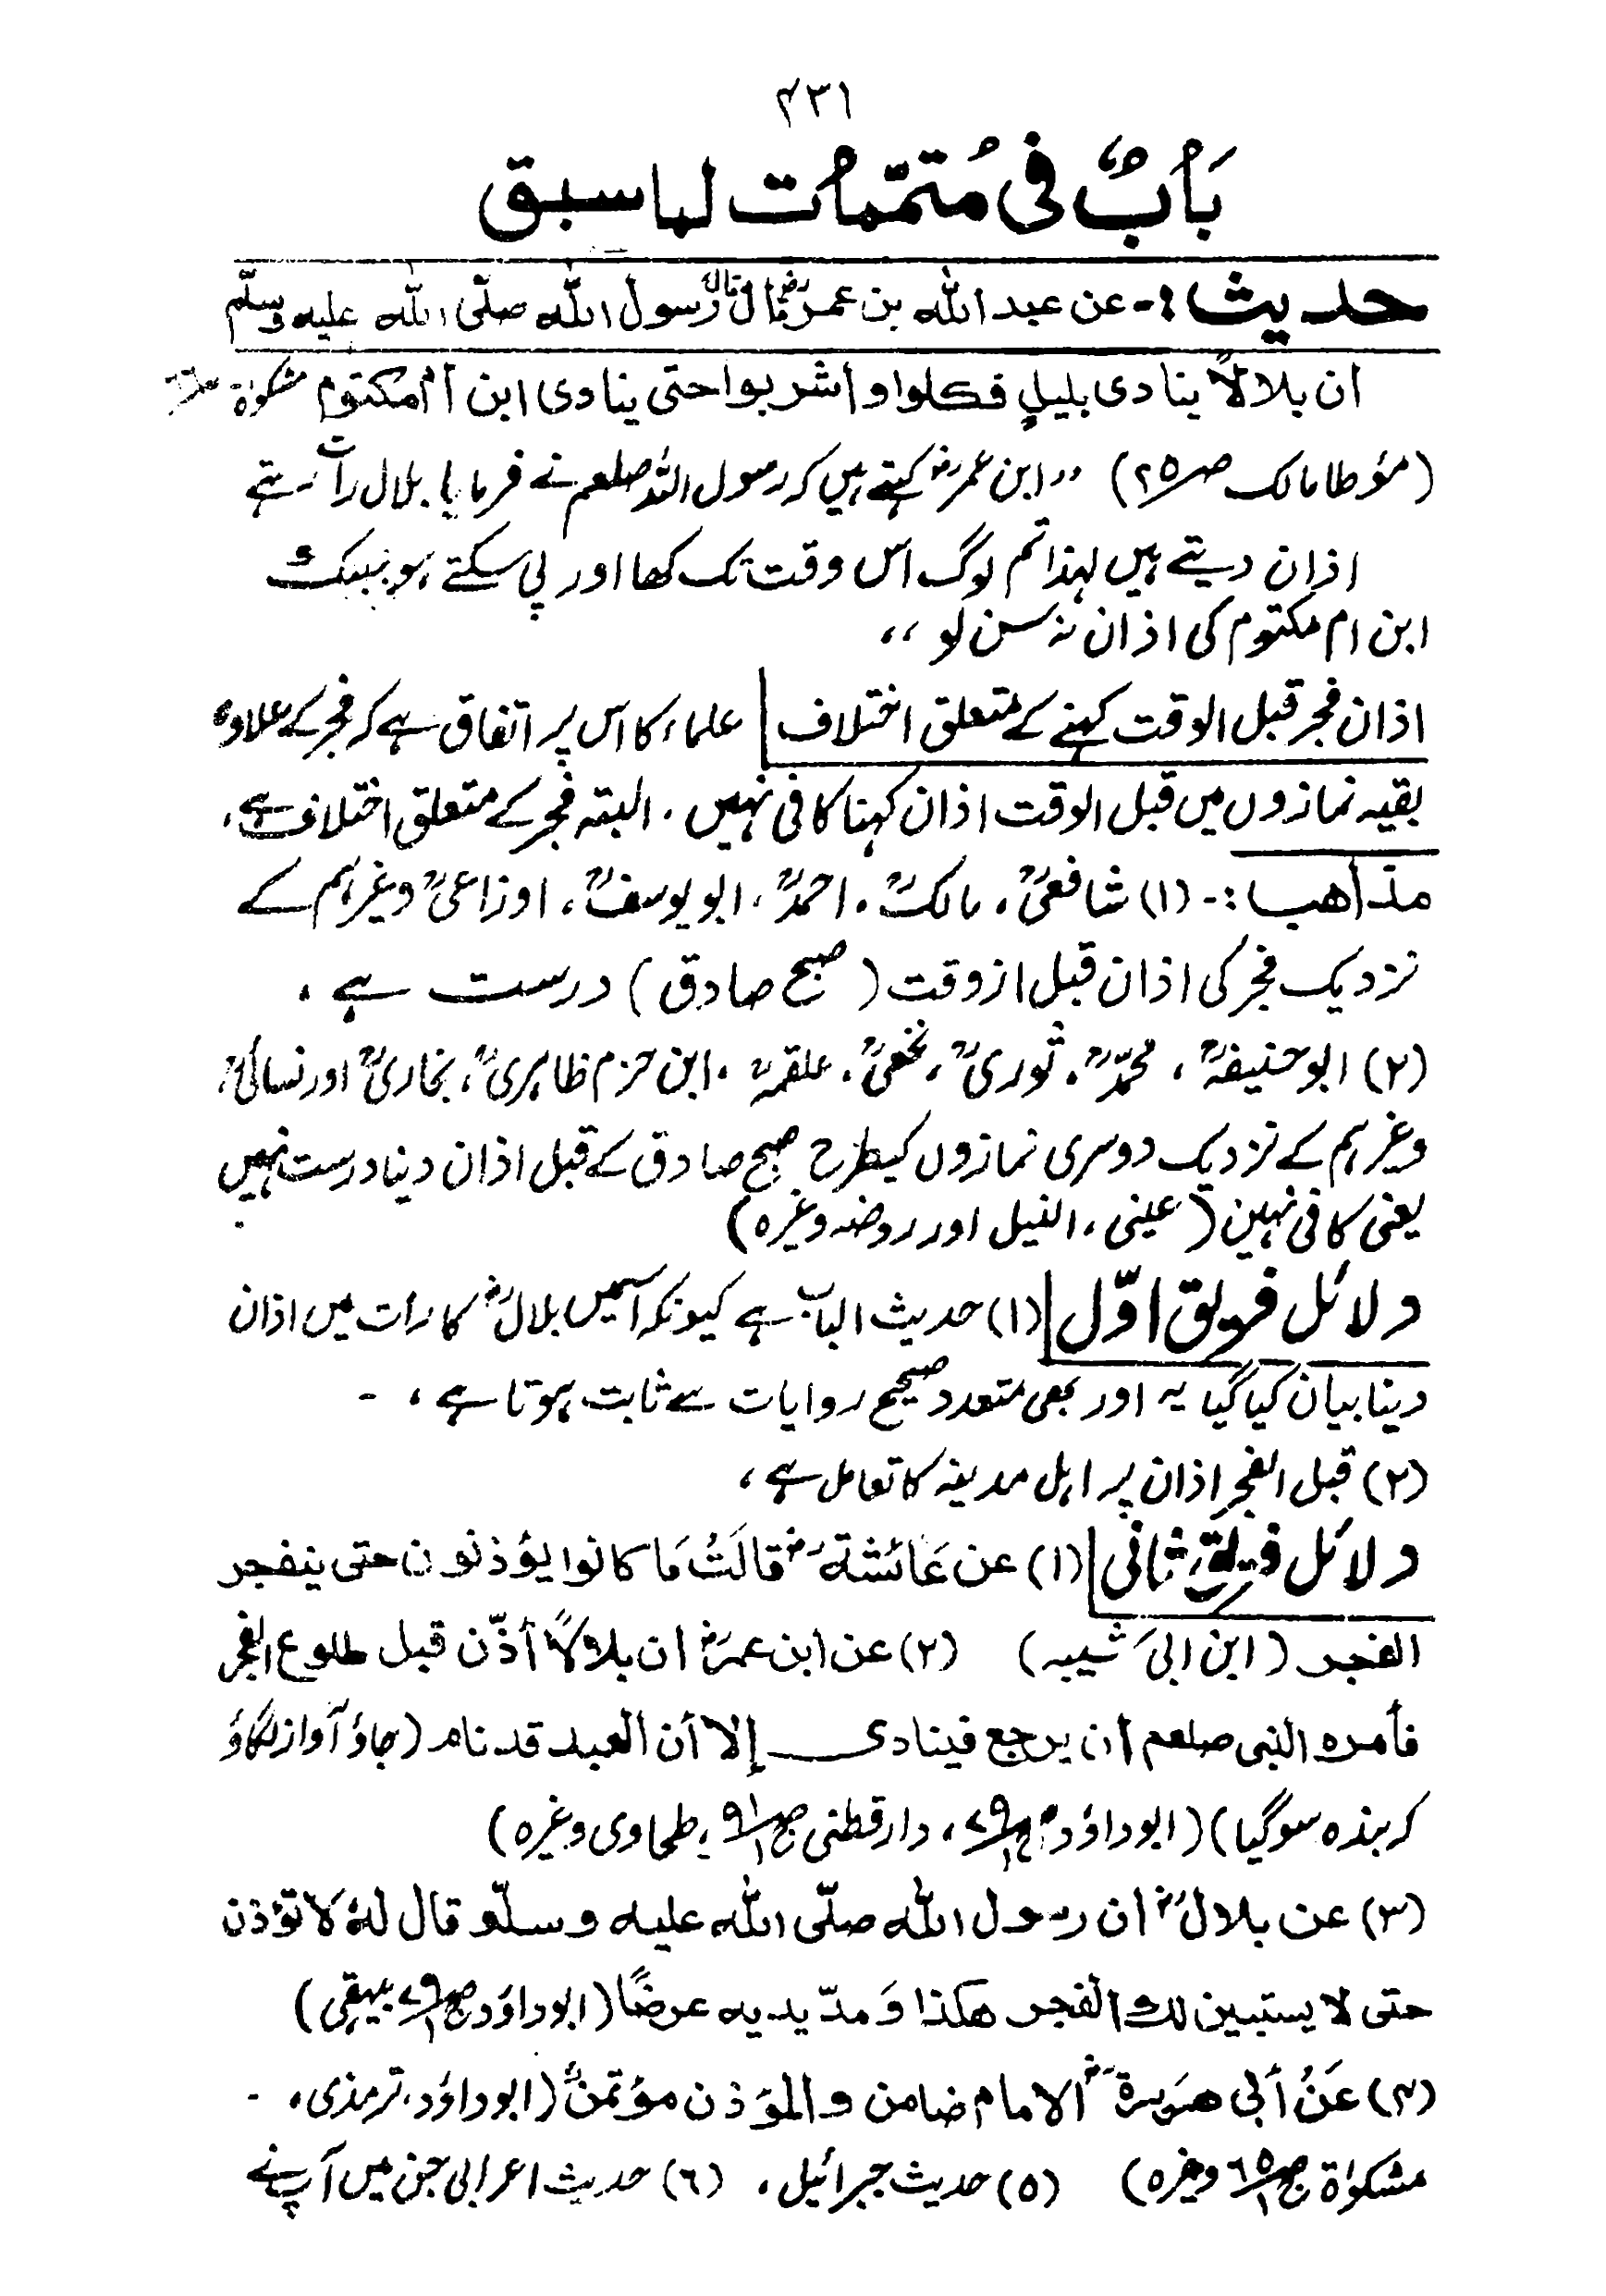 ۴۳۱
بَابٌ فی مُتمّمات لما سبق
حدیث :- عن عبد الله بن عمرؓ قال قال رسول الله صلّی الله علیه وسلّم
ان بلالاً ینادی بلیلٍ فکلوا واشربوا حتی ینادی ابن أم مکتوم مشکوٰة
(مؤطا مالک صـ ۲۵) ،، ابن عمرؓ کہتے ہیں کہ رسول اللہ صلعم نے فرمایا بلال رات رہتے
اذان دیتے ہیں لہذا تم لوگ اس وقت تک کھا اور پی سکتے ہو جبتک
ابن ام مکتوم کی اذان نہ سن لو ،،
اذان فجر قبل الوقت کہنے کے متعلق اختلاف علماء کا اس پر اتفاق ہے کہ فجر کے علاوہ
بقیہ نمازوں میں قبل الوقت اذان کہنا کافی نہیں ۔ البتہ فجر کے متعلق اختلاف ہے،
مذاهب :- (۱) شافعیؒ ، مالکؒ ، احمدؒ ، ابو یوسفؒ ، اوزاعیؒ وغیرہم کے
نزدیک فجر کی اذان قبل از وقت (صبح صادق) درست ہے ،
(۲) ابو حنیفہؒ ، محمدؒ ، ثوریؒ ، نخعیؒ ، علقمہؒ ، ابن حزم ظاہریؒ ، بخاریؒ اور نسائیؒ ،
وغیرہم کے نزدیک دوسری نمازوں کیطرح صبح صادق کے قبل اذان دینا درست نہیں
یعنی کافی نہین (عینی ، النیل اور روضہ وغیرہ)
دلائل فریق اوّل (۱) حدیث الباب ہے کیونکہ اسمیں بلالؓ کا رات میں اذان
دینا بیان کیا گیا یہ اور بھی متعدد صحیح روایات سے ثابت ہوتا ہے ، -
(۲) قبل الفجر اذان پر اہل مدینہ کا تعامل ہے ،
دلائل فریق ثانی (۱) عن عَائشةؓ قالَتْ مَا کانوا یؤذنون حتی ینفجر
الفجر (ابن ابی شیبہ) (۲) عن ابن عمرؓ ان بلالاً أذّن قبل طلوع الفجر
فأمره النبی صلعم أن یرجع فینادی إلا أن العبد قد نام (جاؤ آواز لگاؤ
کہ بندہ سوگیا) (ابوداؤد ج۱ صـ ۷۹ ، دارقطنی ج۱ صـ ۹۱ ، طحاوی وغیرہ)
(۳) عن بلالؓ ان رسول الله صلّی الله علیه وسلّم قال لهٗ لا تؤذن
حتی لا یستبین لك الفجر هکذا وَمدّ یدیه عرضًا (ابوداؤد ج۱ صـ ۷۹ بیہقی)
(۴) عَنْ أبی هریرةؓ الامام ضامن والمؤذن مؤتمنٌ (ابوداؤد، ترمذی ، -
مشکوٰة ج۱ صـ ۶۵ وغیرہ) (۵) حدیث جبرائیل ، (۶) حدیث اعرابی جن میں آپ نے